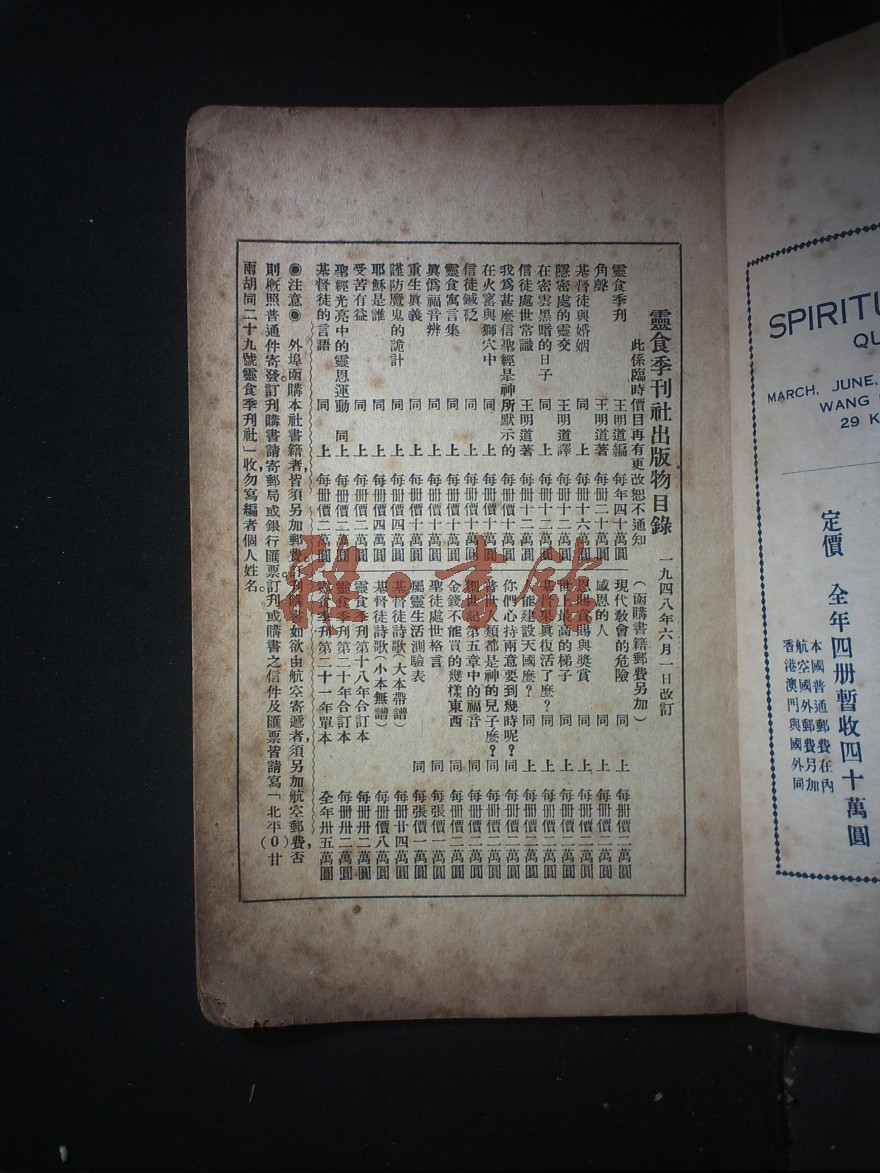 靈食季刊社出版物目錄
一九四八年六月一日改訂
此係臨時價目再有更改恕不通知
(函購書籍郵費另加)
靈食季刊 王明道編 每年四十萬圓
角聲 王明道著 每册二十萬圓
基督徒與婚姻 同上 每册十六萬圓
隱密處的靈交 王明道譯 每册十二萬圓
在密雲黑暗的日子 同上 每册十二萬圓
信徒處世常識 王明道著 每册十二萬圓
我爲甚麼信聖經是神所默示的 每册價十萬圓
在火窰與獅穴中 同上 每册價十萬圓
信徒鍼砭 同上 每册價十萬圓
靈食寓言集 同上 每册價十萬圓
眞僞福音辨 同上 每册價十萬圓
重生眞義 同上 每册價十萬圓
謹防魔鬼的詭計 同上 每册價四萬圓
耶穌是誰 同上 每册價四萬圓
受苦有益 同上 每册價二萬圓
聖經光亮中的靈恩運動 同上 每册價二萬圓
基督徒的言語 同上 每册價二萬圓
現代敎會的危險 同上 每册價二萬圓
感恩的人 同上 每册價二萬圓
恩賜賞賜與獎賞 同上 每册價二萬圓
世上最高的梯子 同上 每册價二萬圓
基督果眞復活了麼? 同上 每册價二萬圓
能建設天國麼? 同上 每册價二萬圓
你們心持兩意要到幾時呢? 同 每册價二萬圓
普世人類都是神的兒子麼? 同 每册價二萬圓
創世記第五章中的福音 同 每册價二萬圓
金錢不能買的幾樣東西 同 每册價二萬圓
聖徒處世格言 同 每張價一萬圓
屬靈生活測驗表 同 每張價一萬圓
基督徒詩歌(大本帶譜) 每册廿四萬圓
基督徒詩歌(小本無譜) 每册價八萬圓
靈食季刊第十八年合訂本 每册卅二萬圓
靈食季刊第二十年合訂本 每册卅二萬圓
靈食季刊第二十一年單本 全年卅五萬圓
◉注意◉ 外埠函購本社書籍者,皆須另加郵費。訂刊購書如欲由航空寄遞者,須另加航空郵費,否
則槪照普通件寄發。訂刊購書請寄郵局或銀行匯票。訂刊或購書之信件及匯票皆請寫「北平(0)甘
雨胡同二十九號靈食季刊社」,收勿寫編者個人姓名。
雜·書館
SPIRITU
QU
MARCH, JUNE,
WANG
29 K
定價 全年四册暫收四十萬圓
本國普通郵費在內
航空國外郵費另加
香港澳門與國外同